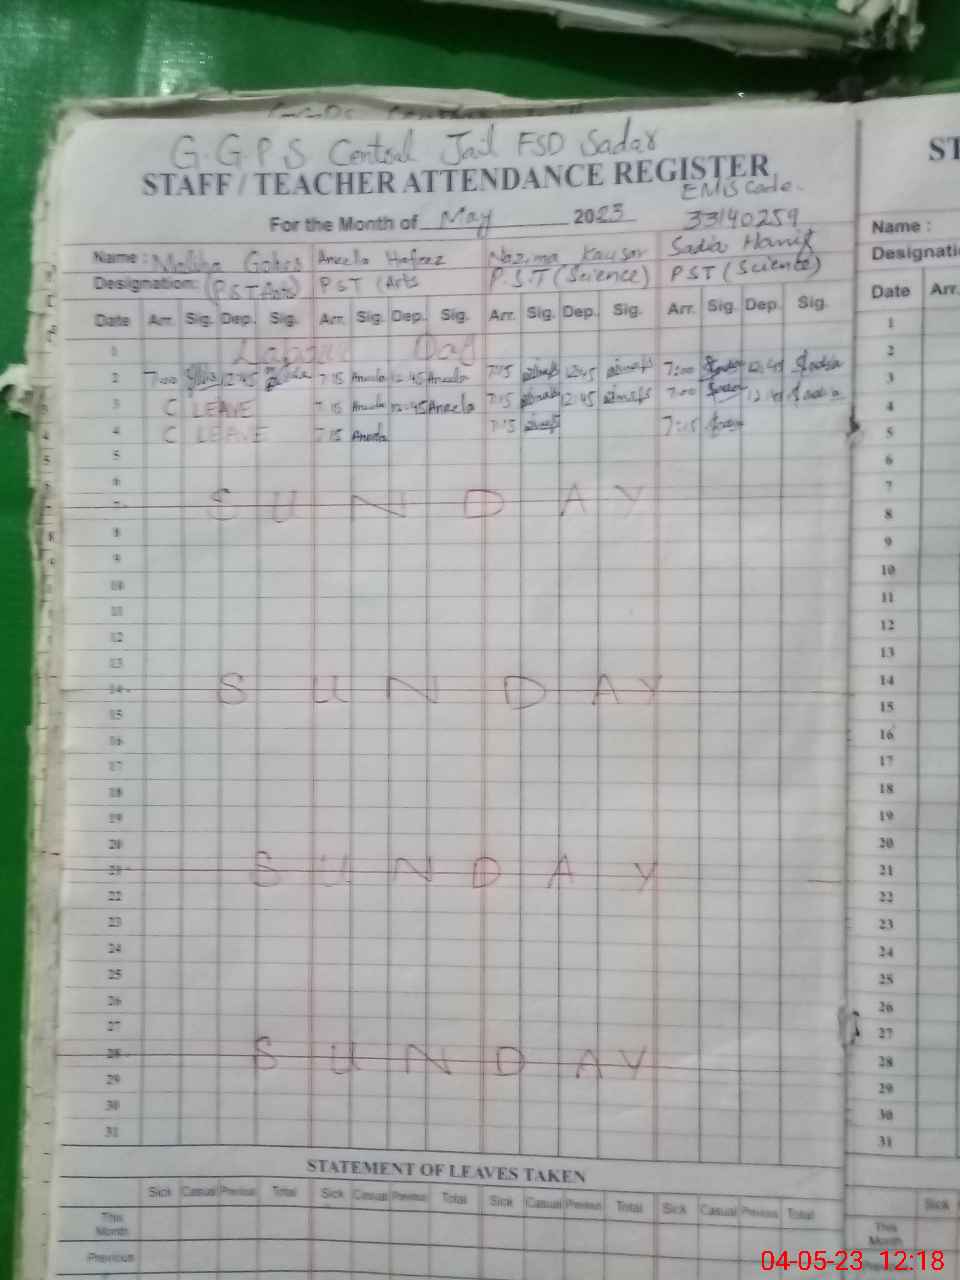 G.G.P.S Central Jail FSD Sadar
STAFF / TEACHER ATTENDANCE REGISTER
EMIS Code.
For the Month of May 2023 33140259
Name : Gohrs Aneela Hafeez Nazima Kausar Sadia Hanif
Designation: (P.S.T Arts) P S T (Arts P.S.T (Science) P S T (Science)
Date Arr. Sig. Dep. Sig. Arr. Sig. Dep. Sig. Arr. Sig. Dep. Sig. Arr. Sig. Dep. Sig.
1 Day
2 7:00 12:45 7:15 Aneela 12:45 Aneela 7:15 12:45 7:00 12:45 Sadia
3 C LEAVE 7:15 Aneela 12:45 Aneela 7:15 12:45 7:00 12:45 Sadia
4 C LEAVE 7:15 Aneela 7:15 7:15
5
6
7 S U N D A Y
8
9
10
11
12
13
14 S U N D A Y
15
16
17
18
19
20
21 S U N D A Y
22
23
24
25
26
27
28 S U N D A Y
29
30
31
STATEMENT OF LEAVES TAKEN
Sick Casual Previous Total Sick Casual Previous Total Sick Casual Previous Total Sick Casual Previous Total
This
Month
Previous
ST
Name :
Designati
Date Arr.
1
2
3
4
5
6
7
8
9
10
11
12
13
14
15
16
17
18
19
20
21
22
23
24
25
26
27
28
29
30
31
Sick
This
Month
04-05-23 12:18